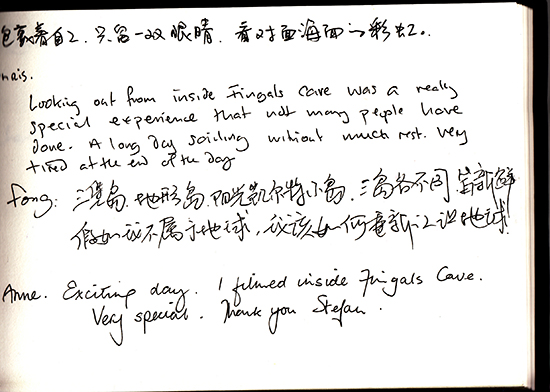 包裹着自己,只留一双眼睛,看对面海面的彩虹。
mais.
Looking out from inside Fingals Cave was a really
special experience that not many people have
done. A long day sailing without much rest. Very
tired at the end of the day
fong: 三 岛, 地形岛, 阳光凯尔特小岛, 三岛各不同 皆新鲜
假如我不属于地球, 我该如何重新认识地球
Anne. Exciting day. I filmed inside Fingals Cave.
Very special. Thank you Stefan.